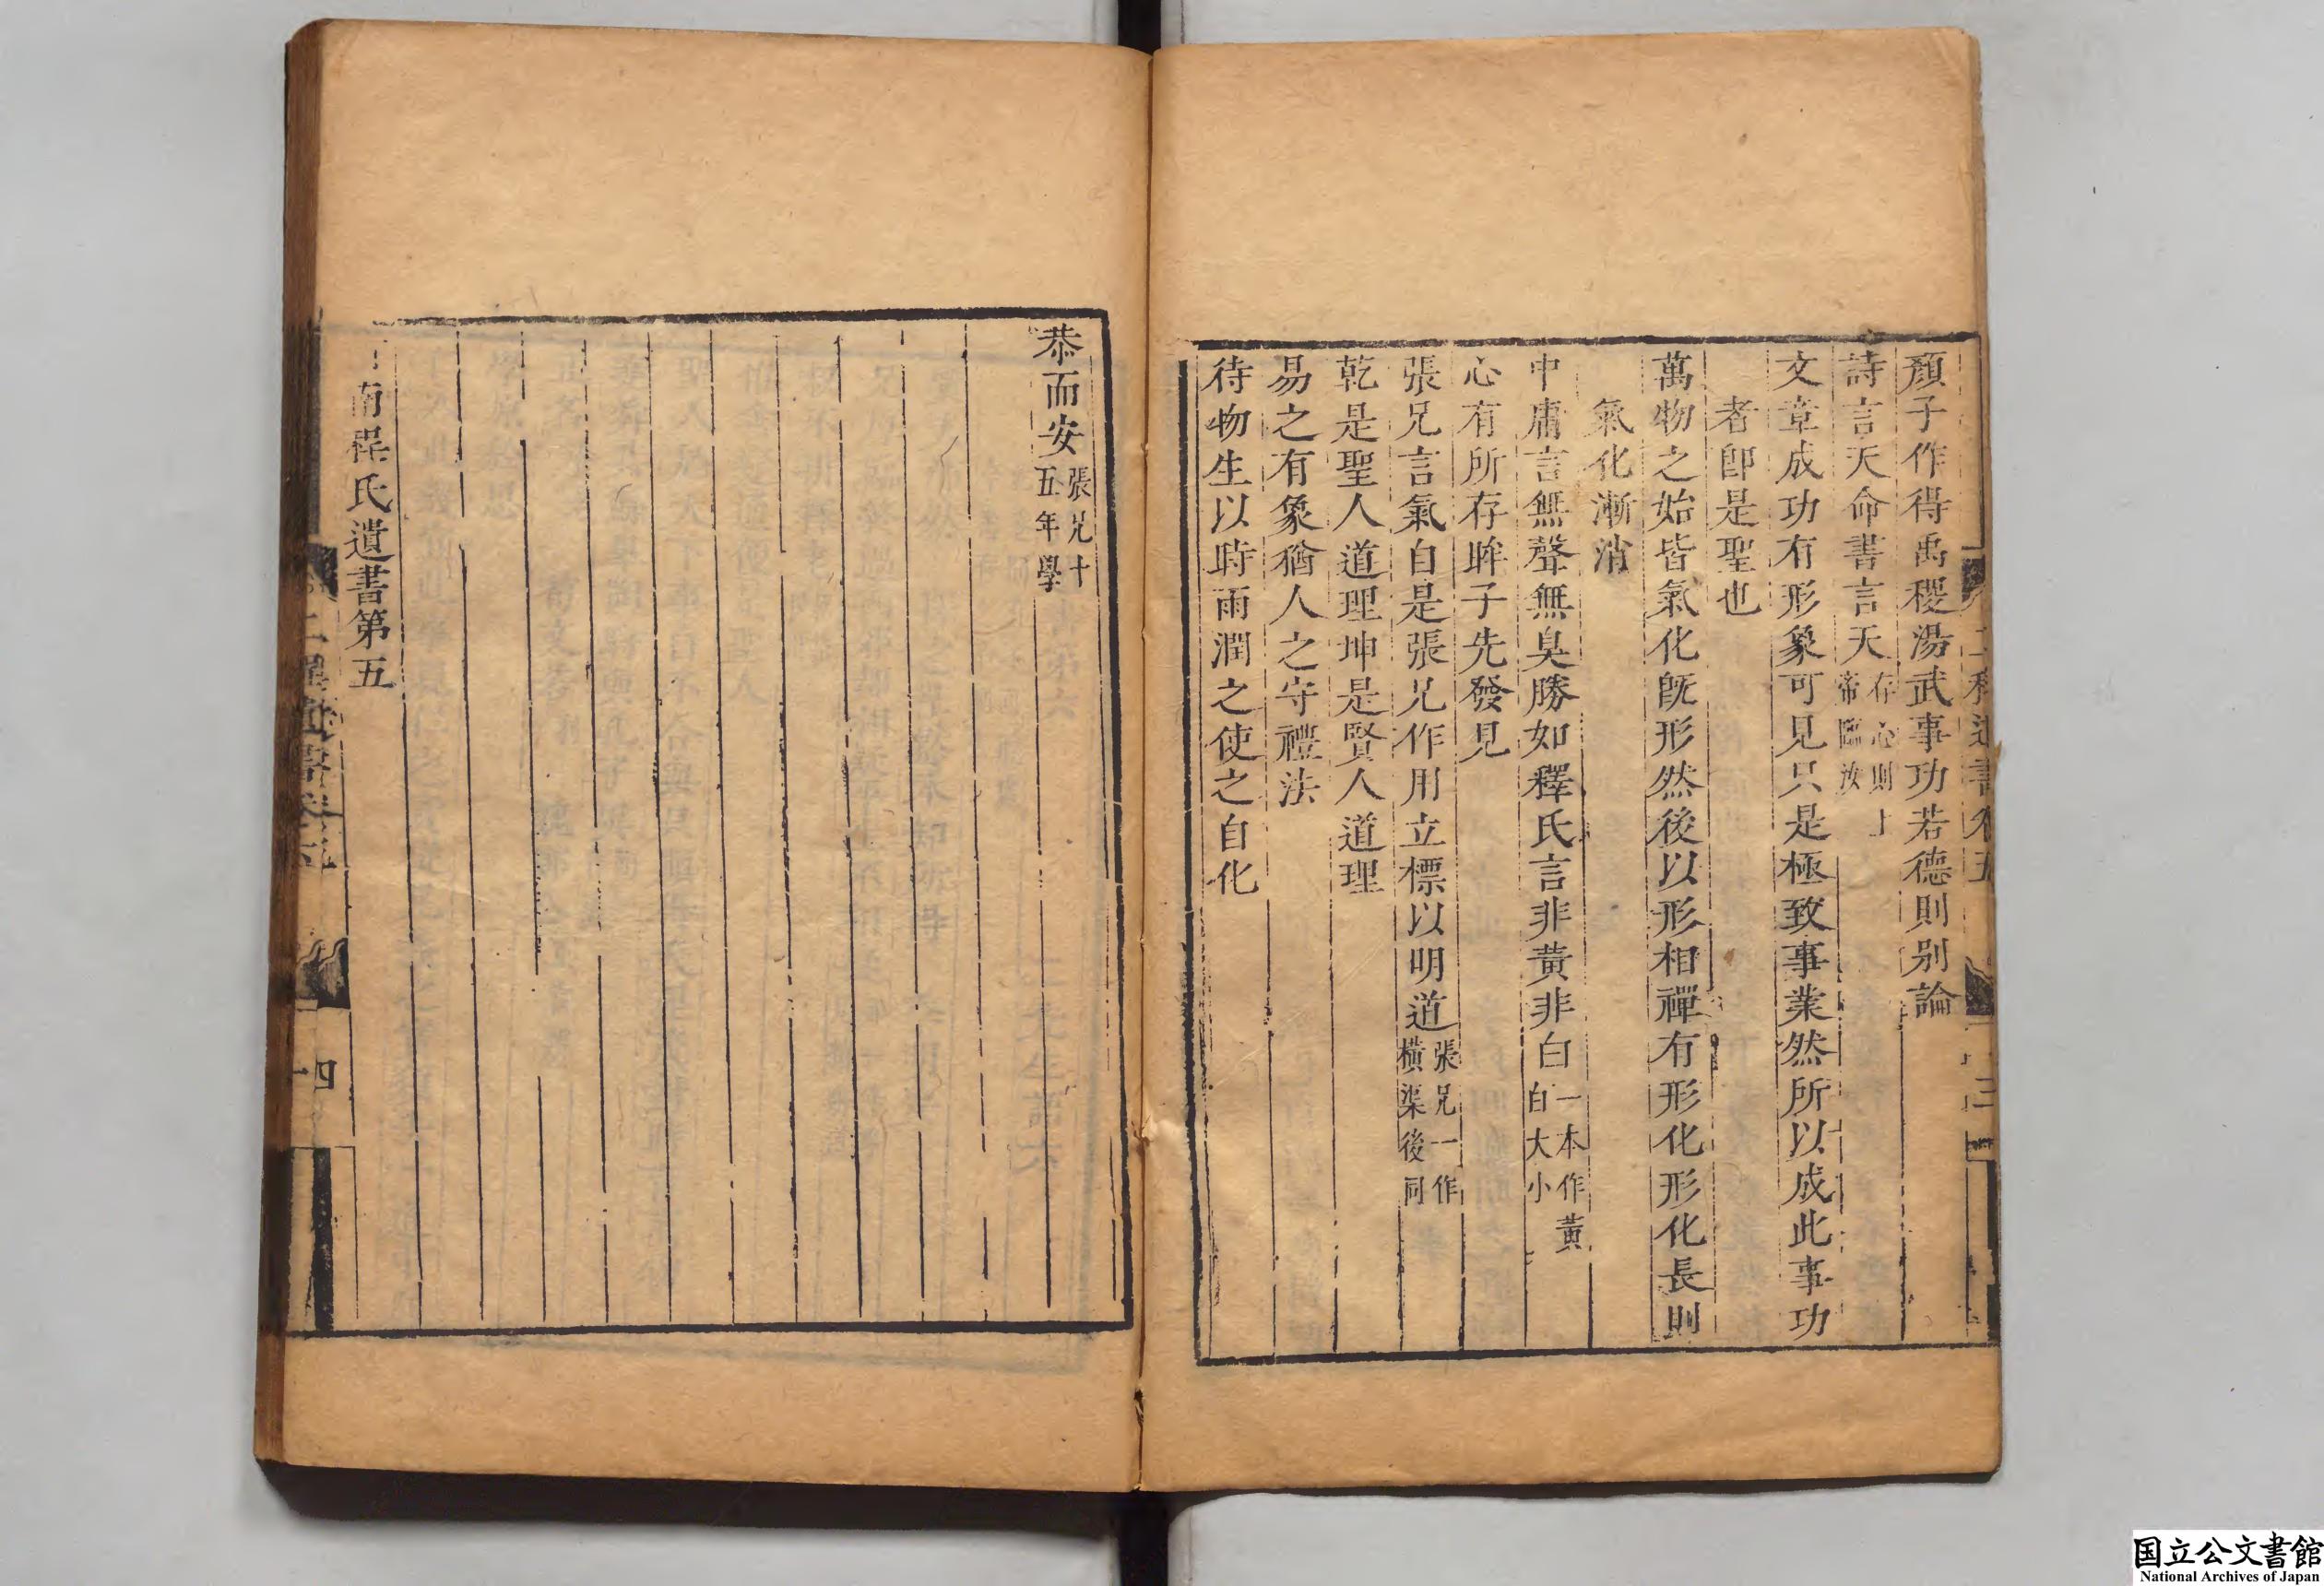 顏子作得禹稷湯武事功若德則别論
詩言天命書言天存心則上帝臨汝
文章成功有形象可見只是極致事業然所以成此事功
者卽是聖也
萬物之始皆氣化旣形然後以形相禪有形化形化長則
氣化漸消
中庸言無聲無臭勝如釋氏言非黃非白一本作黃白大小
心有所存眸子先發見
張兄言氣自是張兄作用立標以明道張兄一作橫渠後同
乾是聖人道理坤是賢人道理
易之有象猶人之守禮法
待物生以時雨潤之使之自化
恭而安張兄十五年學
南程氏遺書第五
二程遺書卷五
四
国立公文書館
National Archives of Japan